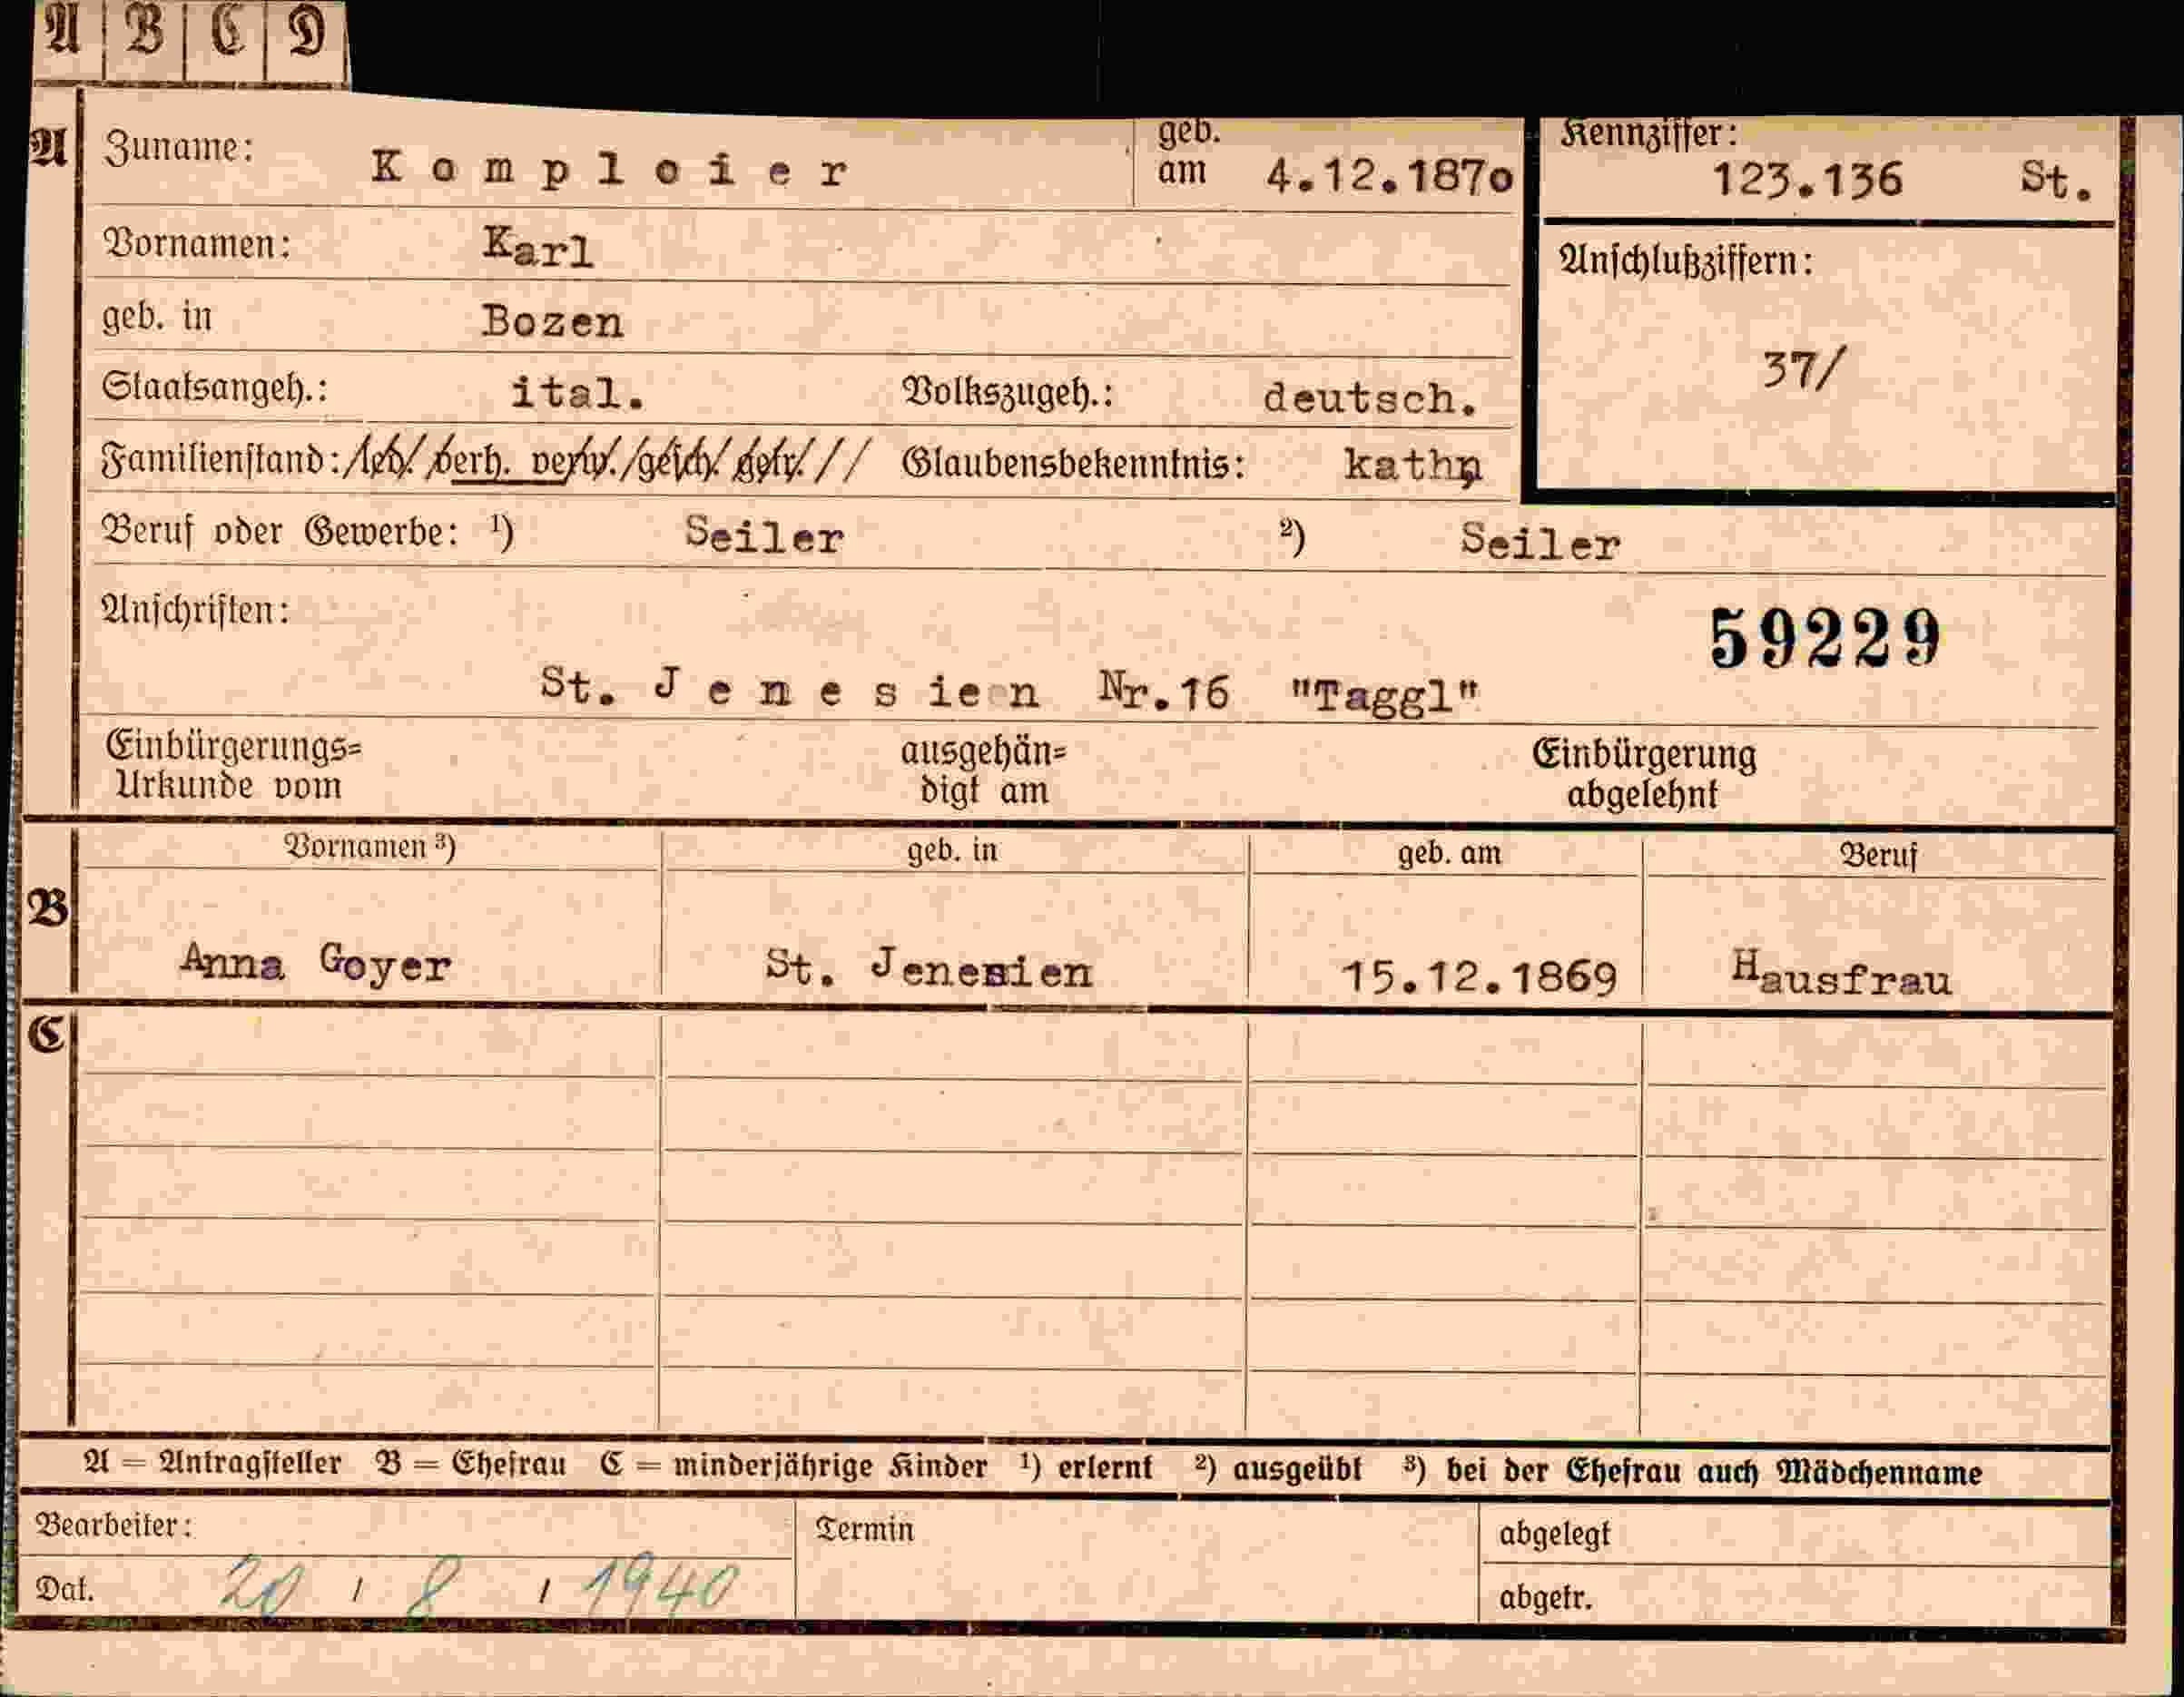 A B C D
A Zuname: Komploier geb. am 4.12.1870 Kennziffer: 123.136 St.
Vornamen: Karl
Anschlußziffern:
geb. in Bozen
37/
Staatsangeh.: ital. Volkszugeh.: deutsch.
Familienstand: led. verh. verw. gesch. getr. Glaubensbekenntnis: kath
Beruf oder Gewerbe: ¹) Seiler ²) Seiler
Anschriften:
59229
St. Jenesien Nr.16 "Taggl"
Einbürgerungs= Urkunde vom ausgehän= digt am Einbürgerung abgelehnt
Vornamen ³) geb. in geb. am Beruf
B
Anna Goyer St. Jenesien 15.12.1869 Hausfrau
C
A = Antragsteller B = Ehefrau C = minderjährige Kinder ¹) erlernt ²) ausgeübt ³) bei der Ehefrau auch Mädchenname
Bearbeiter: Termin abgelegt
Dat. 20 / 8 / 1940 abgetr.